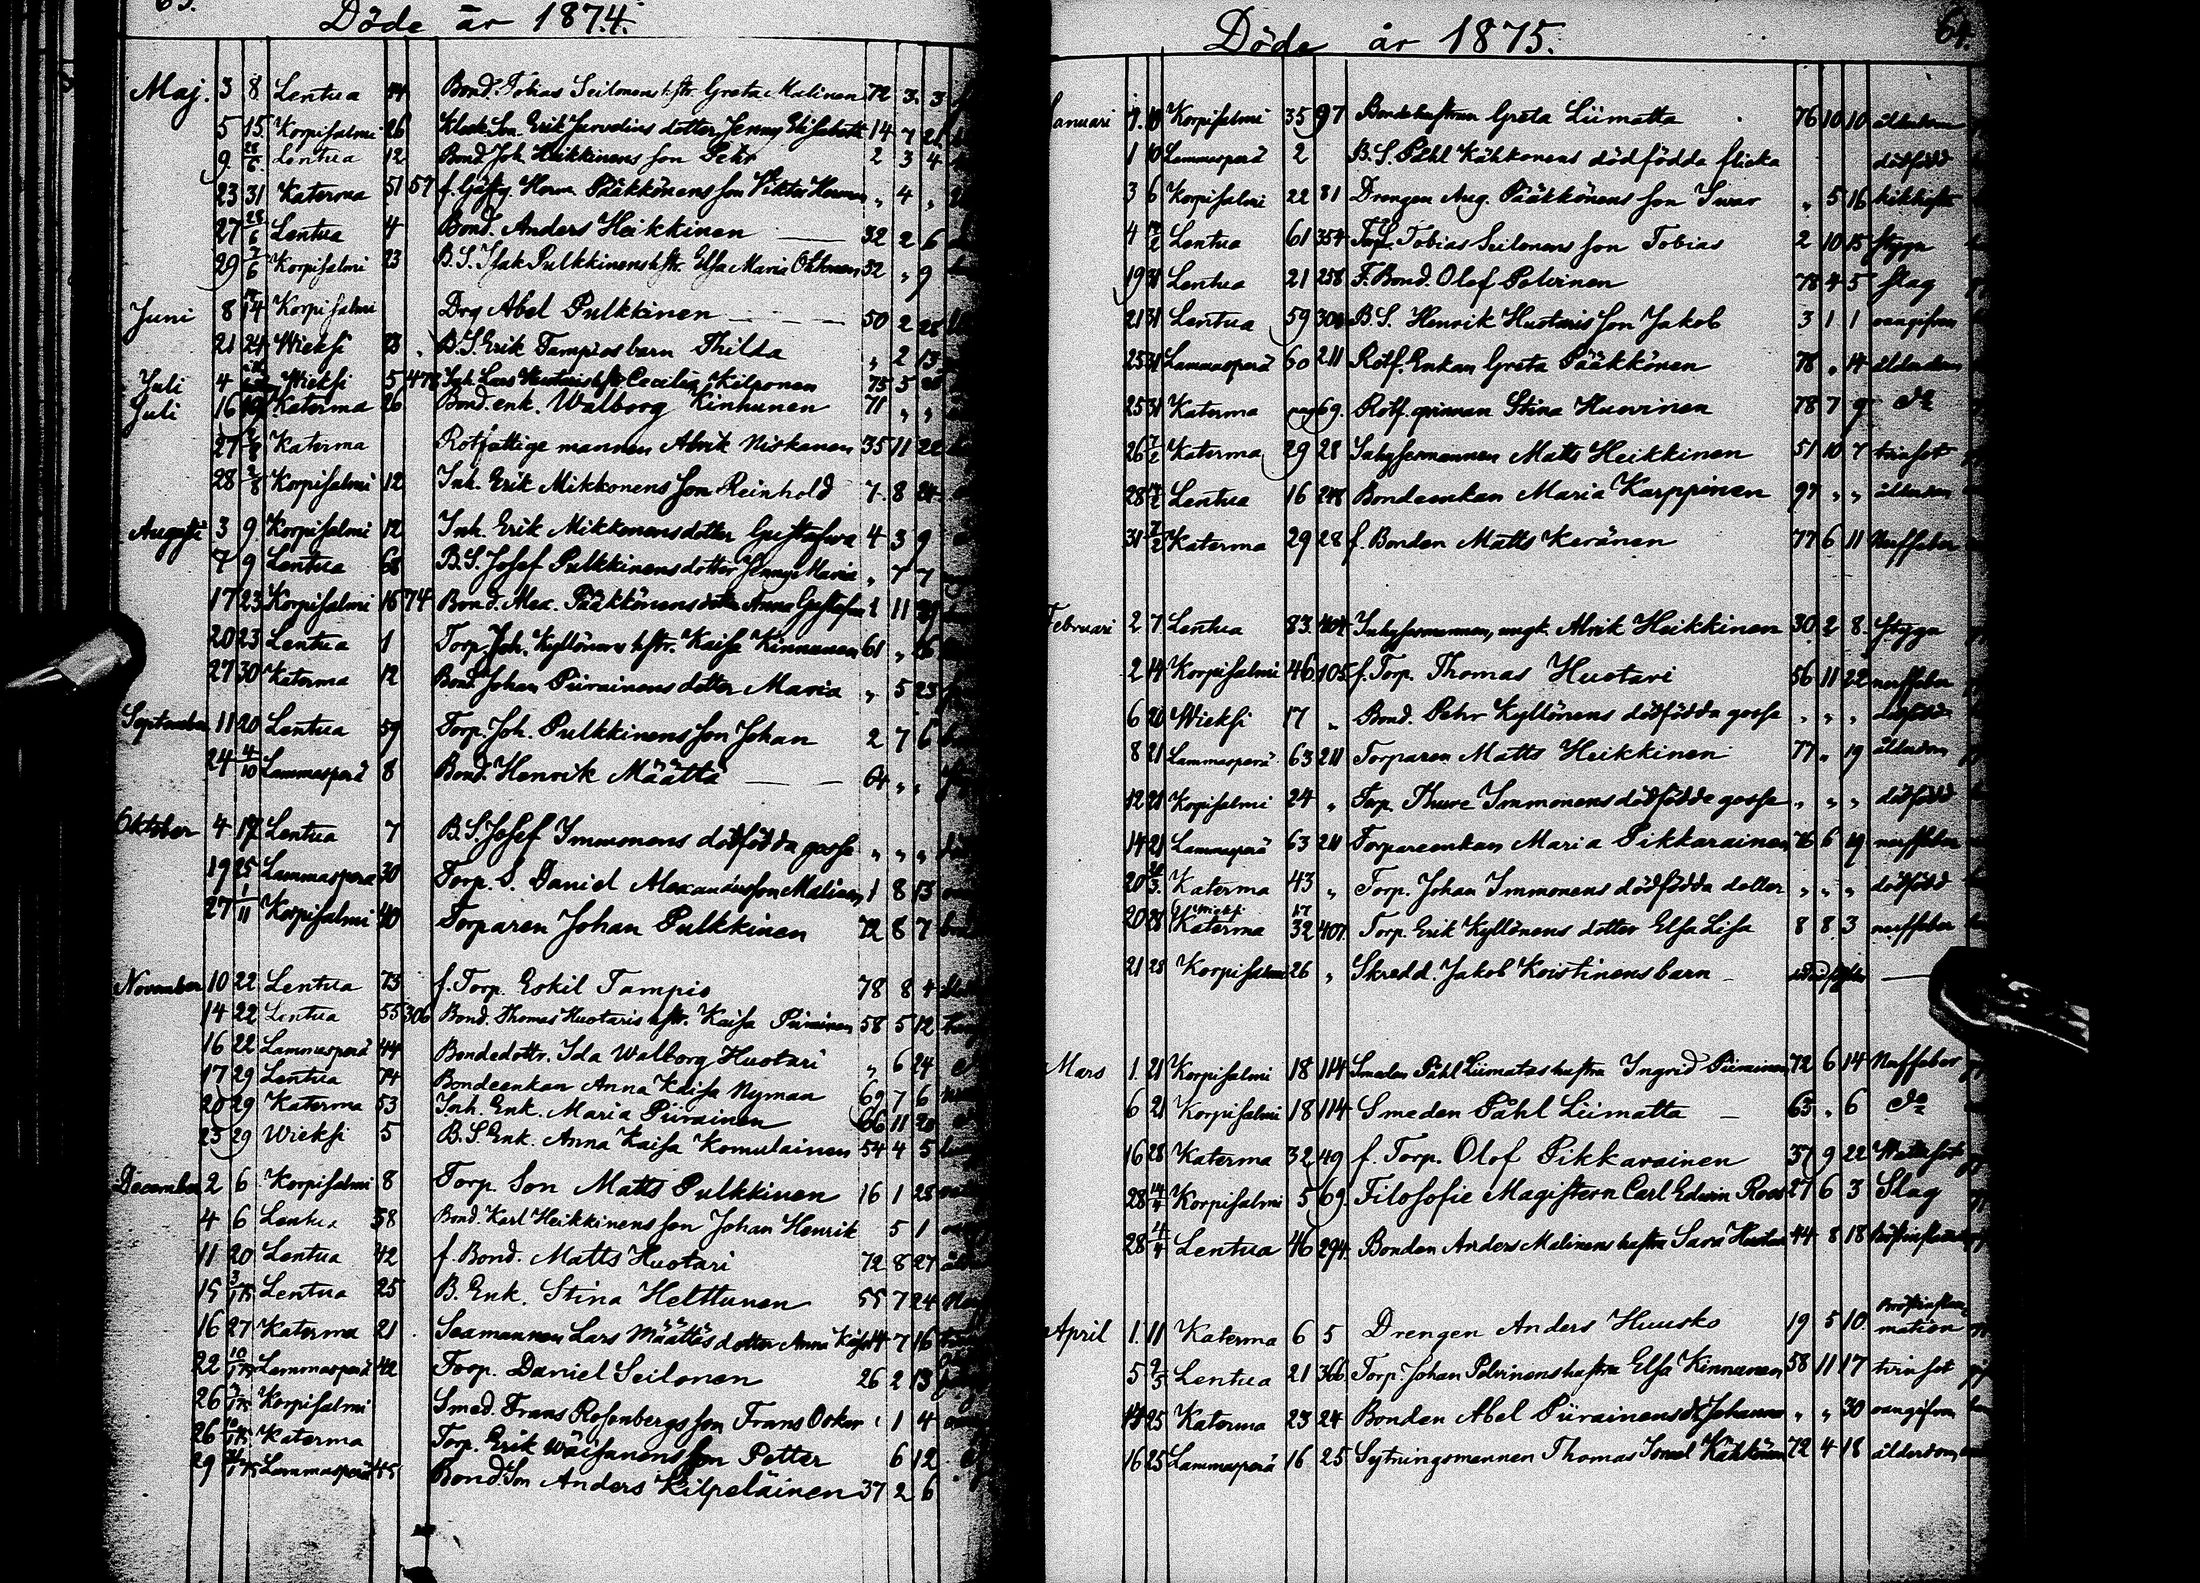 63.
Döde år 1874.
Maj. 3 8 Lentua Bond. Tobias Seilonens hstr. Greta Malinen 72 3 3
5 15 Korpisalmi 26 Erik dotter Jenny Elisabeth 14 7 21
9 Lentua 12 Bond. Joh. Heikkinens son Pehr 2 3 4
23 31 Katerma 51 57 f. Gästg. Herm. Pääkkönens son Viktor Herman „ 4 „
27 28/6 Lentua 4 Bond. Anders Heikkinen 32 2 6
29 7/6 Korpisalmi 23 B. S. Isak Pulkkinens hstr. Elsa Maria Ohtonen 32 „ 9
Juni 8 14 Korpisalmi Drg Abel Pulkkinen 50 2 28
21 24 Wieksi 23 B. S. Erik Tampios barn Thilda „ 2 13
Juli 4 Wieksi 5 Inh. Lars Huotaris hstr Cecilia Kilponen 75 5
Juli 16 19 Katerma 26 Bond. enk. Walborg Kinhunen 71 „ „
27 Katerma Rotfattige mannen Alrik Niskanen 35 11 22
28 2/8 Korpisalmi 12 Inh. Erik Mikkonens son Reinhold 7 8 24
Augusti 3 9 Korpisalmi 12 Inh. Erik Mikkonens dotter Gustafwa 4 3 9
7 9 Lentua 68 B. S. Josef Pulkkinens dotter Jenny Maria „ 7 7
17 23 Korpisalmi 16 74 Bond. Alex. Pääkkönens dotter Anna Gustafva 1 11
20 23 Lentua 1 Torp. Joh. Kyllönens hstr. Kaisa Kinnunen 61 „ 26
27 30 Katerma 12 Bond. Johan Piirainens dotter Maria „ 5 23
September 11 20 Lentua 59 Torp. Joh. Pulkkinens son Johan 2 7 6
24 4/10 Lammasperä 8 Bond. Henrik Määttä 64 „ „
Oktober 4 17 Lentua 7 B. S. Josef Immonens dödfödda gosse „ „ „
19 25 Lammasperä 30 Torp. S. Daniel Alexandersson Malinen 1 8 13
27 1/11 Korpisalmi 40 Torparen Johan Pulkkinen 72 8 7
November 10 22 Lentua 73 f. Torp. Eskil Tampio 78 8 4
14 22 Lentua 55 306 Bond. Thomas Huotaris hstr. Kaisa Piirainen 58 5 12
16 22 Lammasperä 44 Bondedottr. Ida Walborg Huotari „ 6 24
17 29 Lentua 74 Bondeenkan Anna Kaisa Nyman 69 7 6
20 29 Katerma 53 Inh. Enk. Maria Piirainen 66 11 20
23 29 Wieksi 5 B. S. Enk. Anna Kaisa Komulainen 54 4 5
December 2 6 Korpisalmi 8 Torp. Son Matts Pulkkinen 16 1 28
4 6 Lentua 38 Bond. Karl Heikkinens son Johan Henrik 5 1
11 20 Lentua 42 f. Bond. Matts Huotari 72 8 27
15 3/1 75 Lentua 25 B. Enk. Stina Helttunen 55 7 24
16 27 Katerma 21 Lars Määttäs dotter Anna Kaisa 14 7 16
22 10/1 75 Lammasperä 42 Torp. Daniel Seilonen 26 2 13
26 Korpisalmi Smed. Frans Rosenbergs son Frans Oskar 1 4
26 Katerma Torp. Erik Wäisänens son Petter 6 12
29 Lammasperä 45 Bond. Son Anders Kilpeläinen 37 2 6
Döde år 1875.
64.
Januari 10 Korpisalmi 35 97 Bondehustrun Greta Liimatta 76 10 10 ålderdom
1 10 Lammasperä 2 B. S. Påhl Kähkönens dödfödda flicka dödfödd
3 6 Korpisalmi 22 81 Drengen Aug. Pääkkönens son Iwar „ 5 16 kikhosta
4 Lentua 61 354 Torp. Tobias Seilonens son Tobias 2 10 15 stygn
19 31 Lentua 21 258 F. Bond. Olof Polvinen 78 4 5 slag
21 31 Lentua 59 B. S. Henrik Huotaris son Jakob 3 1 1 oangifven
25 31 Lammasperä 60 211 Rotf. Enkan Greta Pääkkönen 78 „ 14 ålderdom
25 31 Katerma 69. Rotf. qvinnan Stina Huovinen 78 7 9 do
26 7/2 Katerma 29 28 Inhysesmannen Matts Heikkinen 51 10 7 tvinsot
28 Lentua 16 248 Bondeenkan Maria Karppinen 97 „ „ ålderdom
31 7/2 Katerma 29 28 f. Bonden Matts Keränen 77 6 11 Nerffeber
Februari 2 7 Lentua 83 404 Inhysesmannen, ungk. Alrik Heikkinen 30 2 8 Stygn
2 14 Korpisalmi 46 105 f. Torp. Thomas Huotari 56 11 22 nerffeber
6 20 Wieksi 17 „ Bond. Pehr Kyllönens dödfödda gosse „ „ „ dödfödd
8 21 Lammasperä 63 211 Torparen Matts Heikkinen 77 „ 19 ålderdom
12 21 Korpisalmi 24 „ Torp. Thure Immonens dödfödde gosse „ „ „ dödfödd
14 21 Lammasperä 63 211 Torpareenkan Maria Pikkarainen 76 6 19 nerffeber
20 Katerma 43 „ Torp. Johan Immonens dödfödda dotter „ „ „ dödfödd
Wieksi 17
20 28 Katerma 32 407 Torp. Erik Kyllönens dotter Elsa Lisa 8 8 3 nerffeber
21 28 Korpisalmi 26 „ Skredd. Jakob Koistinens barn
Mars 1. 21 Korpisalmi 18 114 Smeden Påhl Liimattas hustru Ingrid Piirainen 72 6 14 Nerffeber
6 21 Korpisalmi 18 114 Smeden Påhl Liimatta 63 „ 6 do
16 28 Katerma 32 49 f. Torp. Olof Pikkarainen 37 9 22
28 Korpisalmi 5 69 Filosofie Magistern Carl Edwin Roos 27 6 3 Slag
28 4/4 Lentua 46 294 Bonden Anders Malinens hustru Sara 44 8 18
April 1. 11 Katerma 6 5 Drengen Anders Huusko 19 5 10 Bröstinflam-
mation
5 2/5 Lentua 21 366 Torp. Johan Polvinens hustru Elsa Kinnunen 58 11 17 tvinsot
25 Katerma 23 24 Bonden Abel Piirainens Johanna „ „ 30 oangifven
16 25 Lammasperä 16 25 Sytningsmannen Thomas Kähkönen 72 4 18 ålderdom